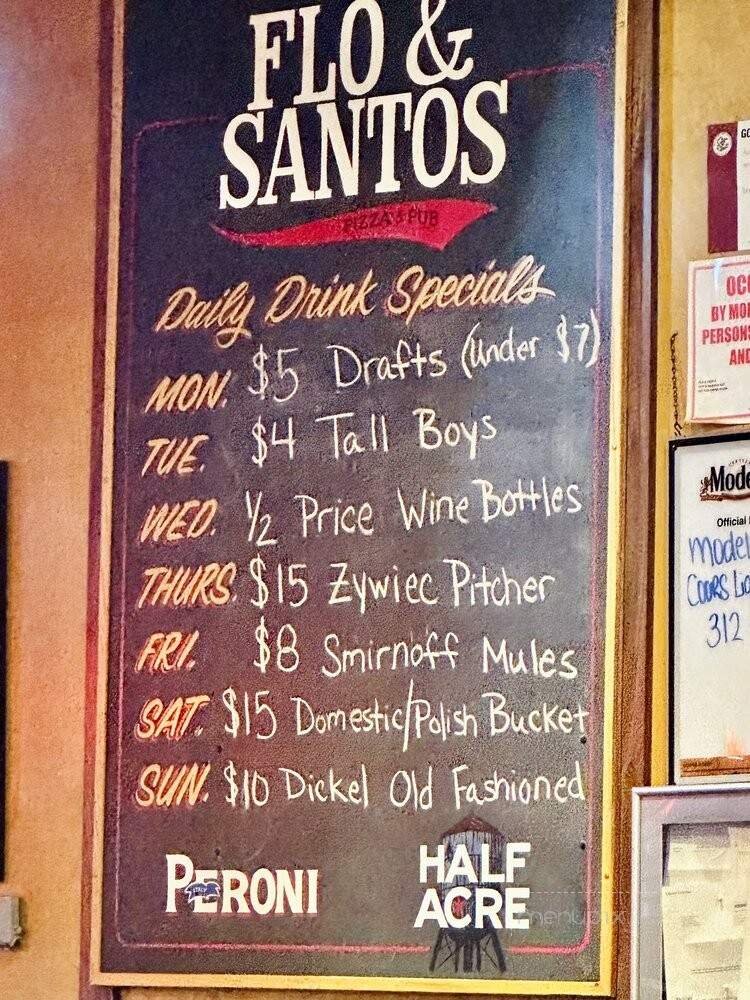 FLO &
SANTOS
PIZZA & PUB
Daily Drink Specials
MON. $5 Drafts (Under $7)
TUE. $4 Tall Boys
WED. 1/2 Price Wine Bottles
THURS. $15 Zywiec Pitcher
FRI. $8 Smirnoff Mules
SAT. $15 Domestic/Polish Bucket
SUN. $10 Dickel Old Fashioned
PERONI
ITALY
HALF
ACRE
menupix
GO
OCC
BY MO
PERSONS
AND
Mode
Official
Model
Coors
312